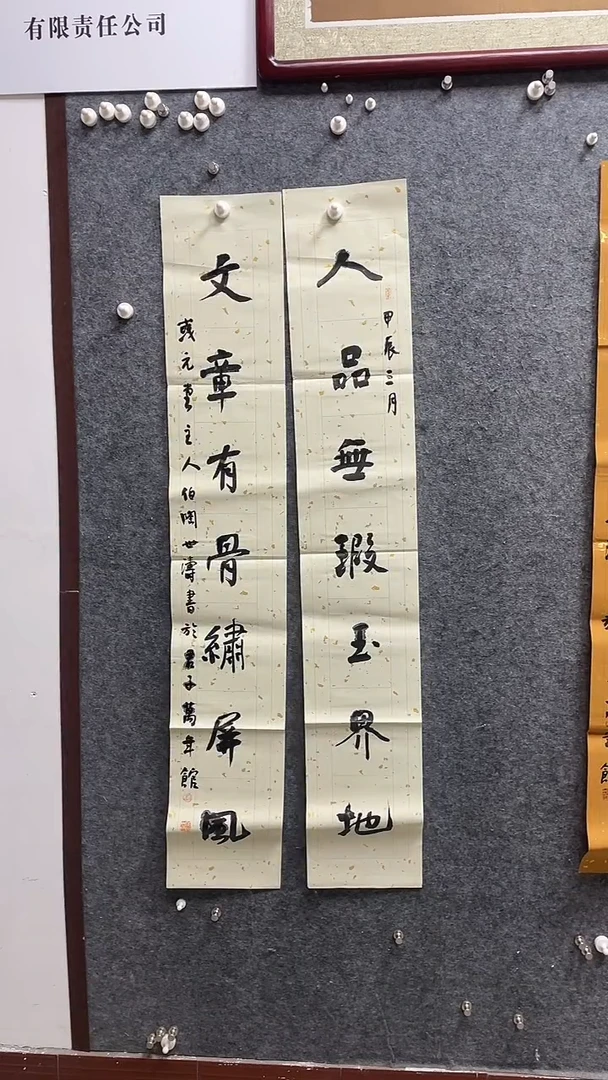 有限责任公司
甲辰三月
人品無瑕玉界地
文章有骨繡屏風
彧元堂主人伯陶世濤書於君子萬年館